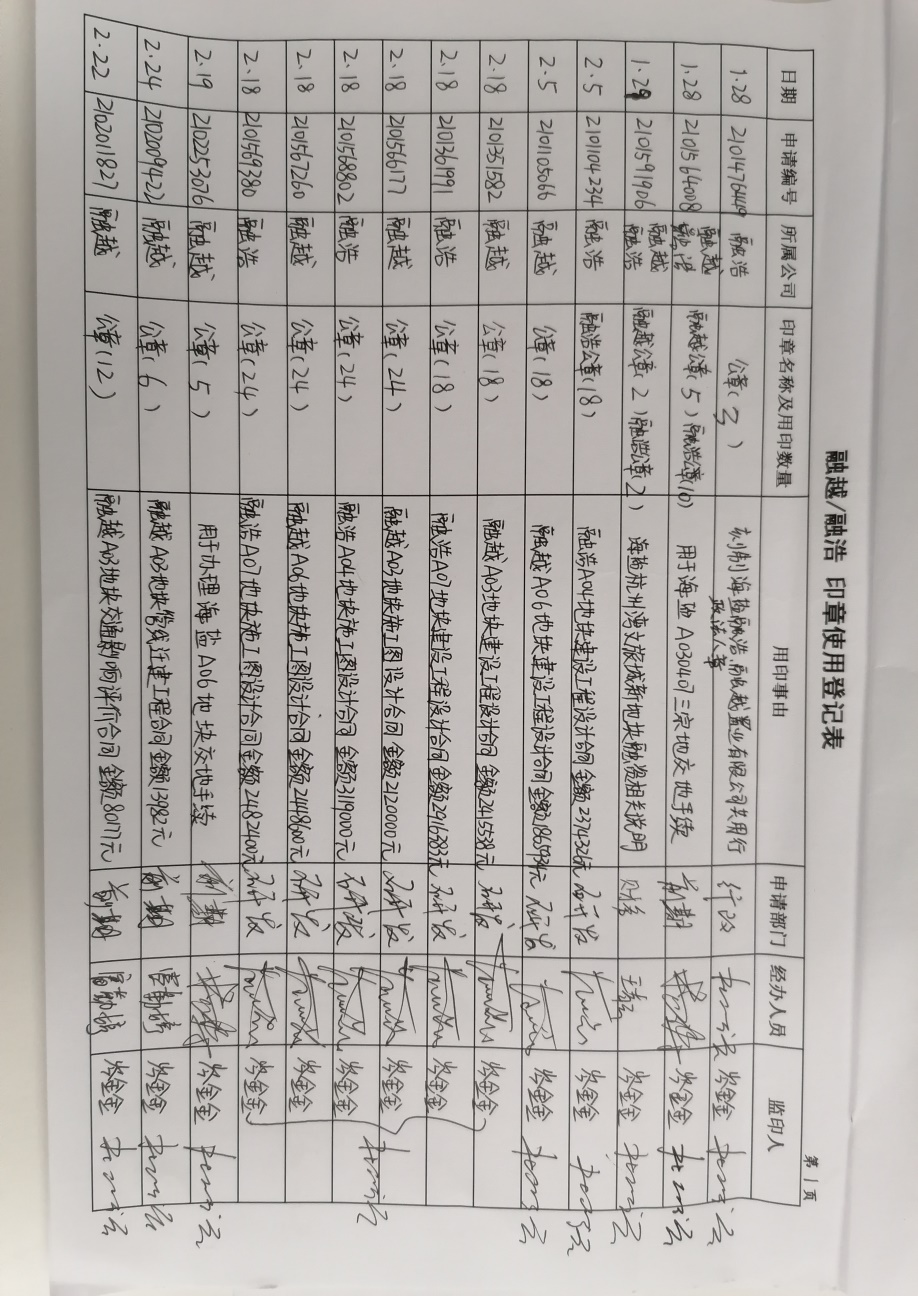 融越/融浩 印章使用登记表
第1页
日期 申请编号 所属公司 印章名称及用印数量 用印事由 申请部门 经办人员 监印人
1.28 2101476449 融浩 公章(3) 刻制海盐融浩、融越置业有限公司共用行政法人章 行政 岑金金
1.28 2101564008 融越 融浩 融越公章(5) 融浩公章(10) 用于海盐A030407三宗地交地手续 前期 岑金金
1.28 2101591906 融越 融浩 融越公章(2) 融浩公章(2) 海盐杭州湾文旅城新地块融资相关说明 财务 岑金金
2.5 2101104234 融浩 融浩公章(18) 融浩A04地块建设工程设计合同 金额2374326元 研发 岑金金
2.5 2101105066 融越 公章(18) 融越A06地块建设工程设计合同 金额1865934元 研发 岑金金
2.18 2101351582 融越 公章(18) 融越A03地块建设工程设计合同 金额2415538元 研发 岑金金
2.18 2101361991 融浩 公章(18) 融浩A07地块建设工程设计合同 金额2916383元 研发 岑金金
2.18 2101566177 融越 公章(24) 融越A03地块施工图设计合同 金额2120000元 研发 岑金金
2.18 2101568802 融浩 公章(24) 融浩A04地块施工图设计合同 金额3119000元 研发 岑金金
2.18 2101567260 融越 公章(24) 融越A06地块施工图设计合同 金额2448600元 研发 岑金金
2.18 2101569380 融浩 公章(24) 融浩A07地块施工图设计合同 金额2482400元 研发 岑金金
2.19 2102253076 融越 公章(5) 用于办理海盐A06地块交地手续 前期 岑金金
2.24 2102009422 融越 公章(6) 融越A03地块管线迁建工程合同 金额13982元 前期 岑金金
2.22 2102011827 融越 公章(12) 融越A03地块交通影响评价合同 金额80177元 前期 岑金金